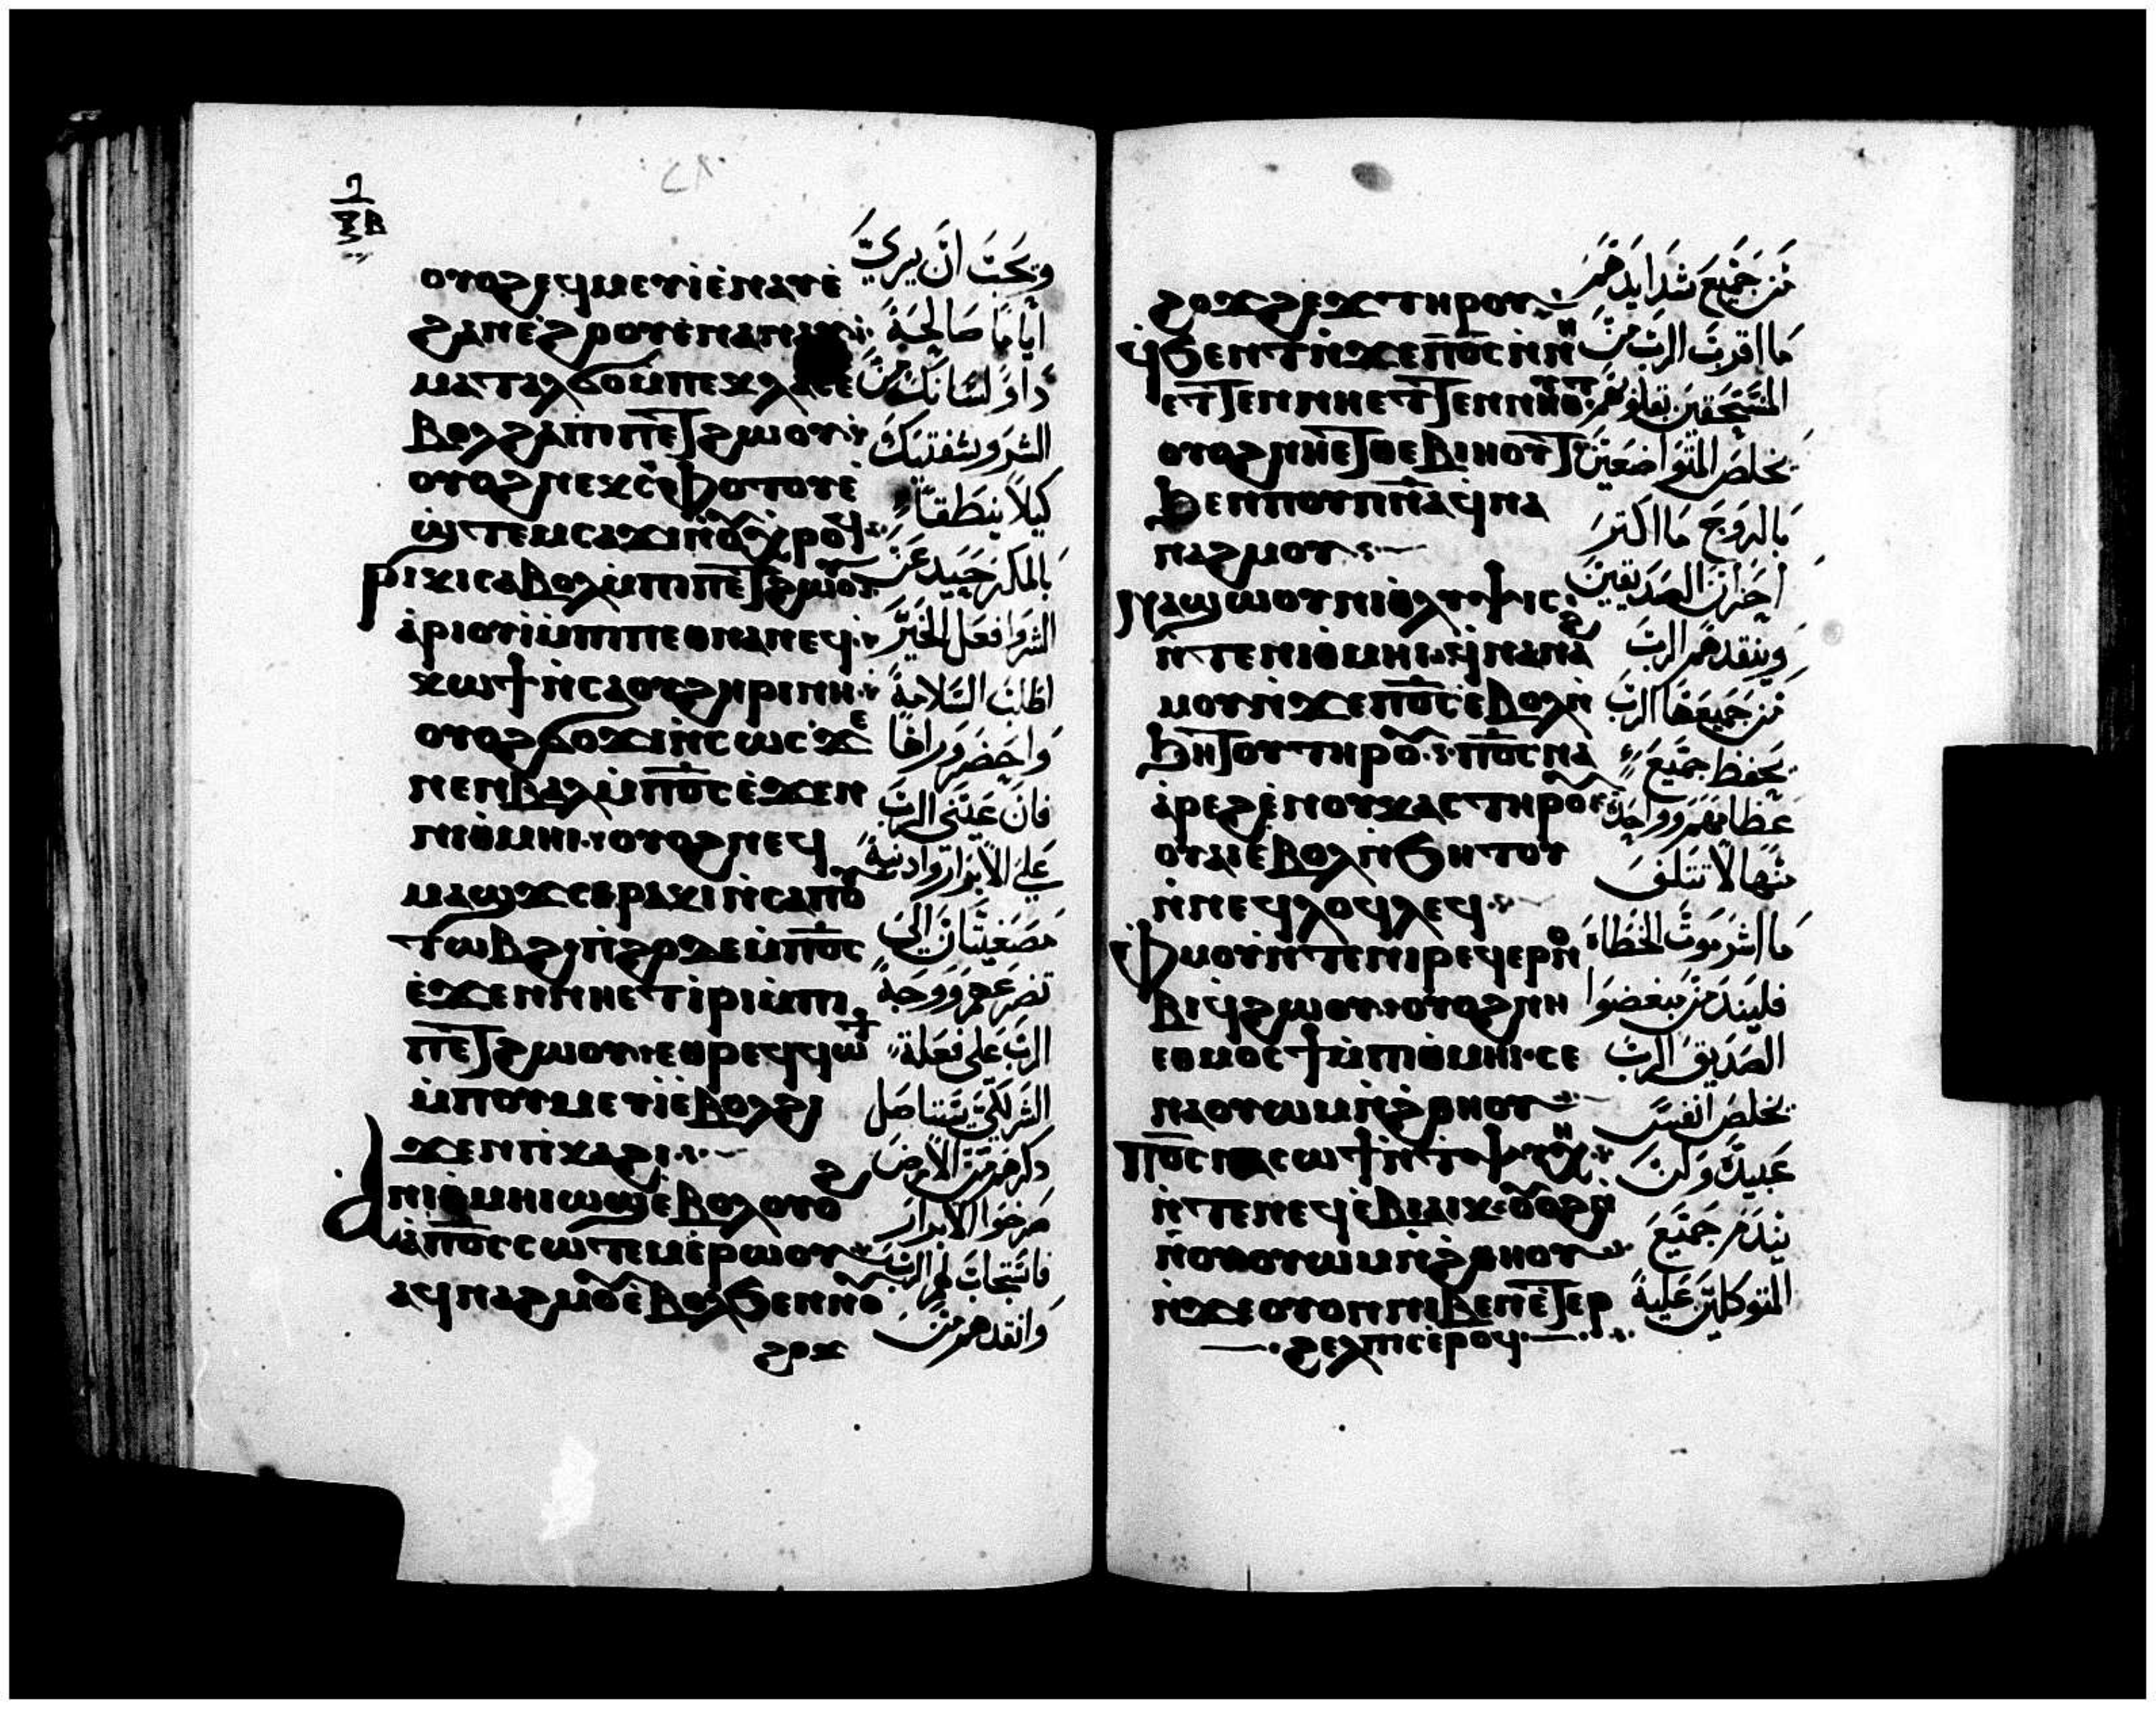 ⲟⲩⲟϩ ⲉϥⲙⲉⲩⲓ ⲉⲛⲁⲩ ⲉ
ϩⲁⲛⲉϩⲟⲟⲩ ⲉⲛⲁⲛⲉⲩ
ⲙⲁⲧⲁⲗϭⲟ ⲙⲡⲉⲕⲗⲁⲥ ⲉ
ⲃⲟⲗϩⲁ ⲡⲓⲡⲉⲧϩⲱⲟⲩ
ⲟⲩⲟϩ ⲛⲉⲕⲥⲫⲟⲧⲟⲩ ⲉ
ϣⲧⲉⲙⲥⲁϫⲓ ⲛⲟⲩⲭⲣⲟϥ
ⲣⲓⲕⲓ ⲥⲁⲃⲟⲗ ⲙⲡⲓⲡⲉⲧϩⲱⲟⲩ
ⲁⲣⲓⲟⲩⲓ ⲙⲡⲓⲡⲉⲑⲛⲁⲛⲉϥ
ⲕⲱϯ ⲛⲥⲁ ⲟⲩϩⲓⲣⲓⲛⲏ
ⲟⲩⲟϩ ϭⲟϫⲓ ⲛⲥⲱⲥ ϫⲉ
ⲛⲉⲛⲃⲁⲗ ⲙⲡⲟⲥ ⲉϫⲉⲛ
ⲛⲓⲑⲙⲏⲓ ⲟⲩⲟϩ ⲛⲉϥ
ⲙⲁϣϫ ⲥⲉⲣⲁⲕⲓ ⲛⲥⲁ ⲡⲟⲩ
ⲧⲱⲃϩ ⲡϩⲟ ϫⲉ ⲙⲡⲟⲥ
ⲉϫⲉⲛ ⲛⲏⲉⲧⲓⲣⲓ ⲙⲡⲓ
ⲡⲉⲧϩⲱⲟⲩ ⲉⲑⲣⲉϥϥⲱϯ
ⲙⲡⲟⲩⲙⲉⲩⲓ ⲉⲃⲟⲗ ϩⲓ
ϫⲉⲛ ⲡⲓⲕⲁϩⲓ
ⲁ ⲛⲓⲑⲙⲏⲓ ⲱϣ ⲉⲃⲟⲗ ⲟⲩⲟϩ
ⲁ ⲡⲟⲥ ⲥⲱⲧⲉⲙ ⲉⲣⲱⲟⲩ
ⲁϥⲛⲁϩⲙⲟⲩ ⲉⲃⲟⲗϧⲉⲛ ⲛⲟⲩ
ϩⲟϫ
ويحب ان يري
اياما صالحة
داو لسانك من
الشر وشفتيك
كيلا ينطقا
بالمكر حيد عن
الشر وافعل الخير
اطلب السلامة
فان عيني الرب
علي الابرار وادنيه
الرب علي فعلة
صرخوا الابرار
وانقدهم من
ϩⲟϫϩⲉϫ ⲧⲏⲣⲟⲩ
ϥϧⲉⲛⲧ ⲛϫⲉ ⲡⲟⲥ ⲛⲛⲏ
ⲉⲧⲧⲉⲛⲛⲏⲟⲩⲧ
ⲟⲩⲟϩ ⲛⲏⲉⲧⲑⲉⲃⲓⲏⲟⲩⲧ
ϧⲉⲛ ⲡⲟⲩⲡⲛⲁ ϥⲛⲁ
ⲛⲁϩⲙⲟⲩ
ⲛⲁϣⲱⲟⲩ ⲛⲓϩⲟϫϩⲉϫ
ⲛⲧⲉ ⲛⲓⲑⲙⲏⲓ ϥⲛⲁⲛⲁϩ
ⲙⲟⲩ ⲛϫⲉ ⲡⲟⲥ ⲉⲃⲟⲗⲛ
ϧⲏⲧⲟⲩ ⲧⲏⲣⲟⲩ ⲡⲟⲥ ⲛⲁ
ⲁⲣⲉϩ ⲉⲛⲟⲩⲕⲁⲥ ⲧⲏⲣⲟⲩ
ⲟⲩⲁⲓ ⲉⲃⲟⲗ ⲛϧⲏⲧⲟⲩ
ⲛⲛⲉϥⲗⲟϥⲗⲉϥ
ⲫⲙⲟⲩ ⲛⲧⲉ ⲛⲓⲣⲉϥⲉⲣⲛⲟ
ⲃⲓ ϥϩⲱⲟⲩ ⲟⲩⲟϩ ⲛⲏ
ⲉⲑⲙⲟⲥϯ ⲙⲡⲓⲑⲙⲏⲓ ⲥⲉ
ⲛⲁⲟⲩⲱⲙ ⲛϩⲑⲏⲟⲩ
ⲡⲟⲥ ⲛⲁⲥⲱϯ ⲛⲧⲯⲩⲭⲏ
ⲛⲧⲉ ⲛⲉϥⲉⲃⲓⲁⲓⲕ ⲟⲩⲟϩ
ⲛⲛⲟⲩⲟⲩⲱⲙ ⲛϩⲑⲏⲟⲩ
ⲛϫⲉ ⲟⲩⲟⲛ ⲛⲓⲃⲉⲛ ⲉⲧⲉⲣ
ϩⲉⲗⲡⲓⲥ ⲉⲣⲟϥ
من جميع شدايدهم
ما اقرب الرب من
يخلص المتواضعين
بالروح ما اكتر
احزان الصديقين
وينقدهم الرب
من جميعها الرب
يحفظ جميع
منها لا تتلف
ما اشر موت الخطاة
الصديق الرب
يخلص انفس
يندم جميع
المتوكلين عليه